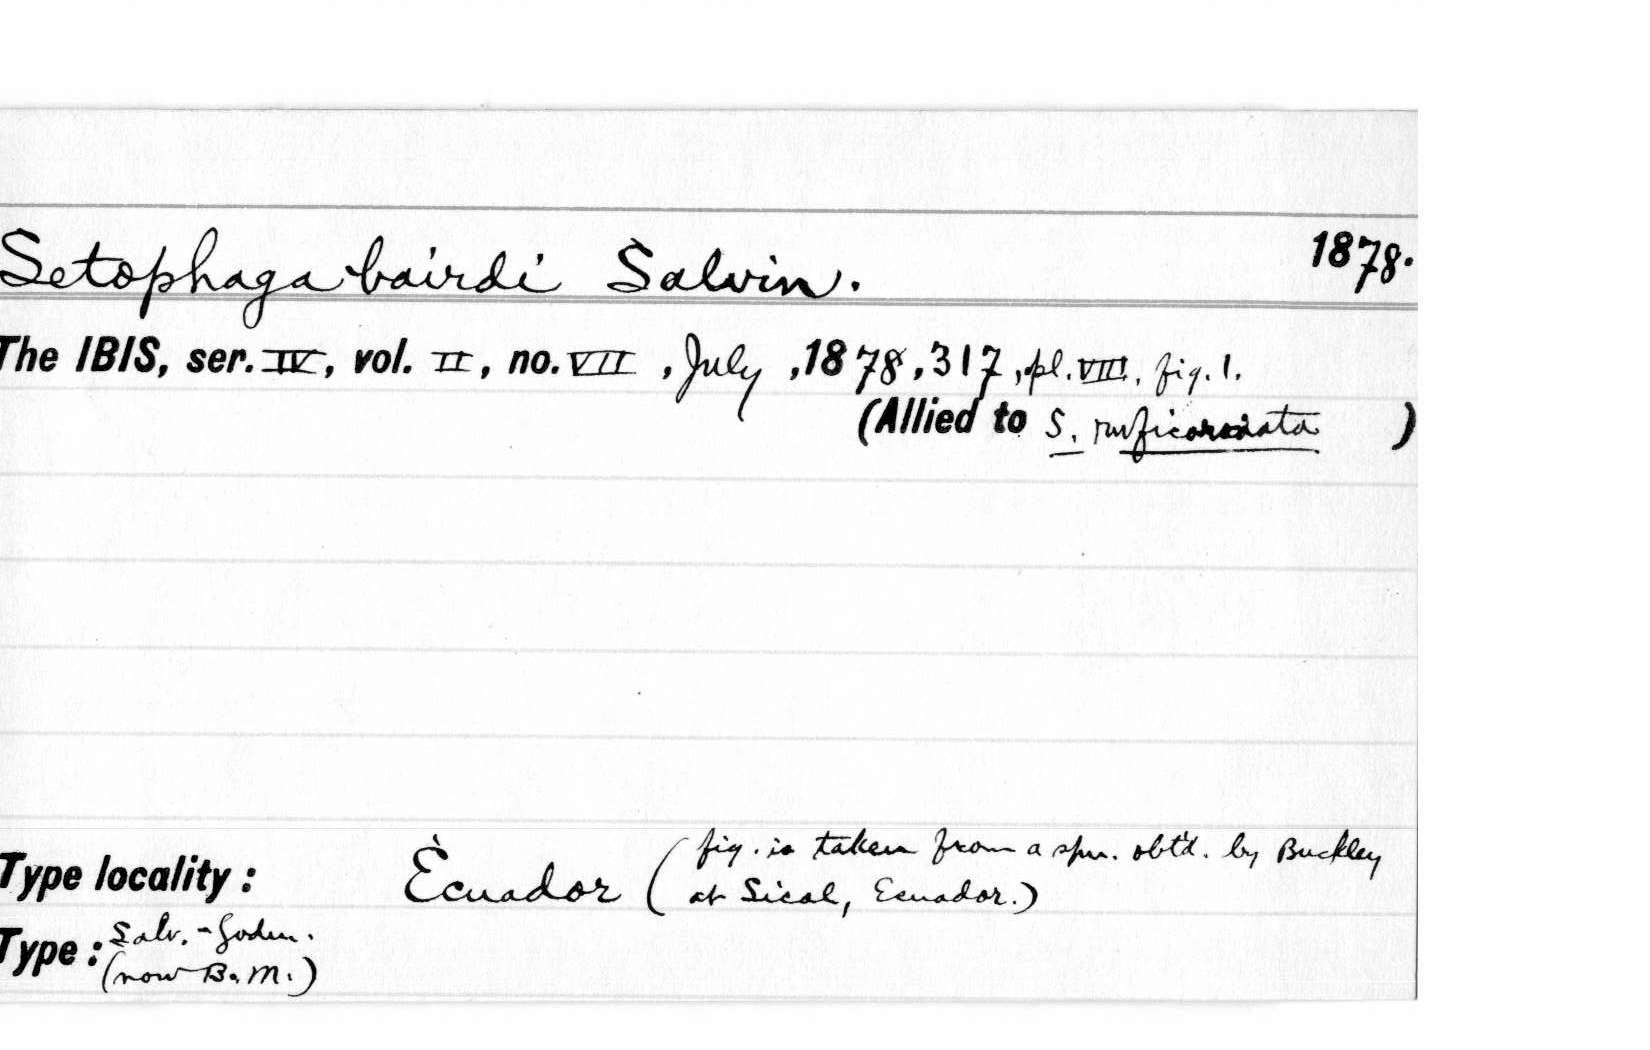 Setophaga bairdi Salvin. 1878.
The IBIS, ser. IV, vol. II, no. VII, July, 1878, 317, pl. VIII, fig. 1.
(Allied to S. ruficoronata )
Type locality: Ecuador (fig. is taken from a spm. obt'd. by Buckley
at Sical, Ecuador.)
Type: Salv.-Godm.
(now B.M.)